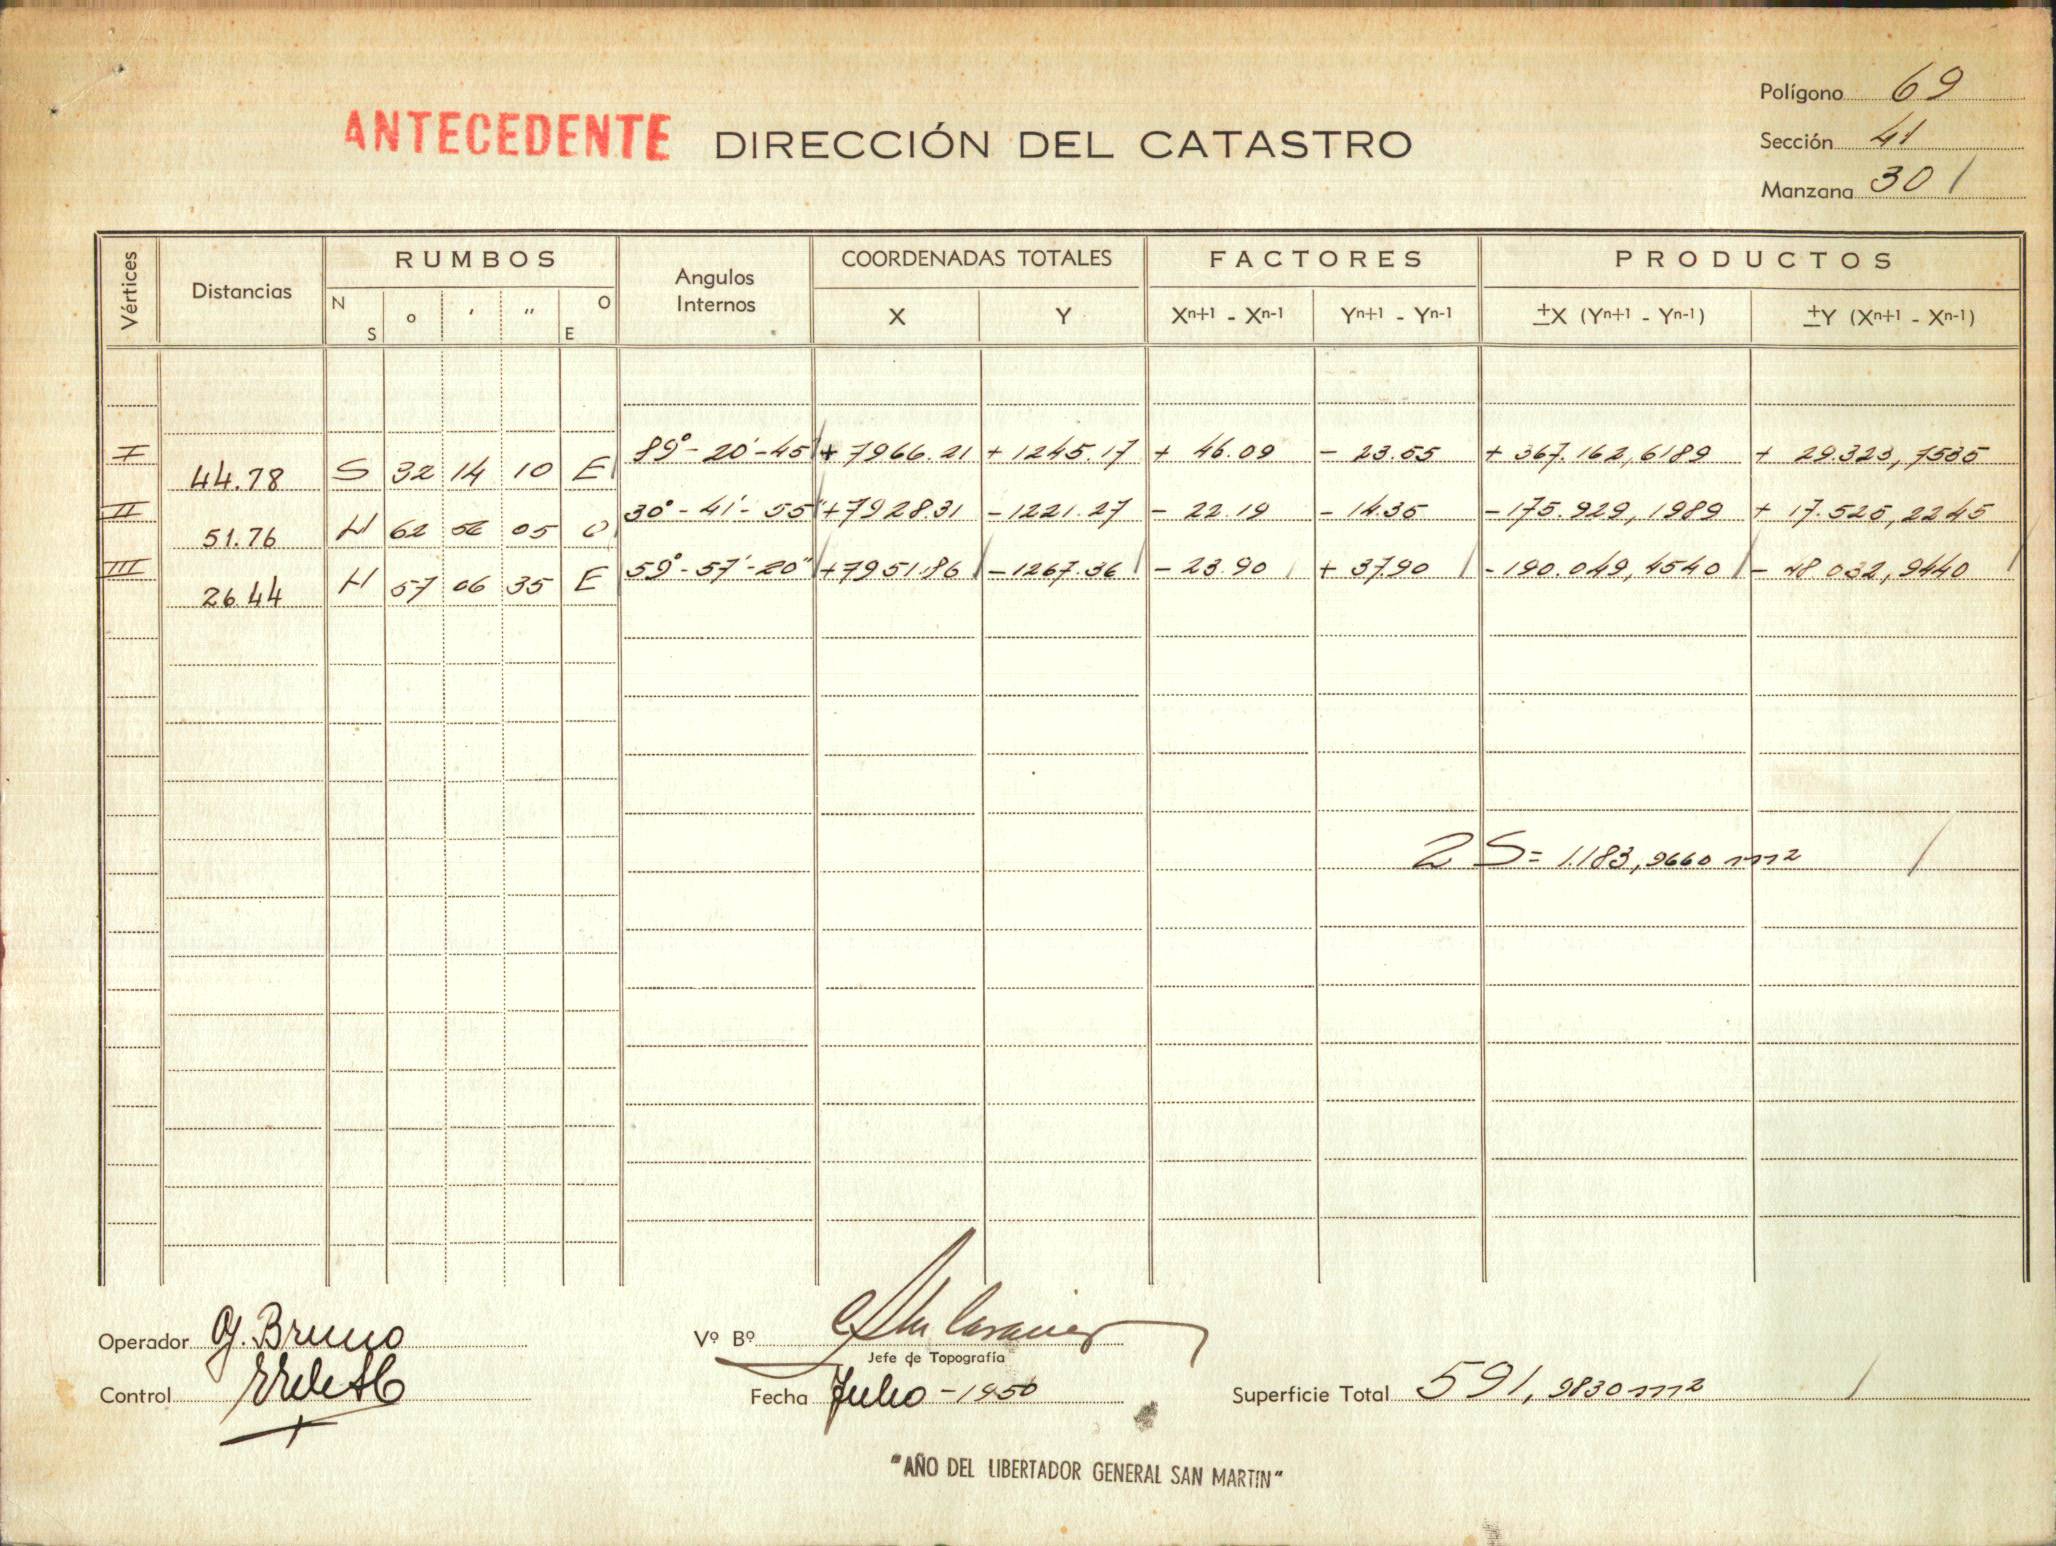 Polígono 69
ANTECEDENTE DIRECCIÓN DEL CATASTRO
Sección 41
Manzana 30
Vértices Distancias RUMBOS Angulos Internos COORDENADAS TOTALES FACTORES PRODUCTOS
N S o ' " O E X Y Xn+1 - Xn-1 Yn+1 - Yn-1 ±X (Yn+1 - Yn-1) ±Y (Xn+1 - Xn-1)
I 89° - 20' - 45" + 7966.21 + 1245.17 + 46.09 - 23.55 + 367.162,6189 + 29.323,7535
44.78 S 32 14 10 E
II 30° - 41' - 55" + 7928.31 - 1221.27 - 22.19 - 14.35 - 175.929,1989 + 17.525,2245
51.76 N 62 56 05 O
III 59° - 57' - 20" + 7951.86 - 1267.36 - 23.90 + 37.90 - 190.049,4540 - 48.032,9440
26.44 N 57 06 35 E
2 S = 1.183,9660 m2
Operador G. Bruno
Vº Bº
Jefe de Topografía
Control
Fecha Julio - 1950
Superficie Total 591,9830 m2
"AÑO DEL LIBERTADOR GENERAL SAN MARTIN"